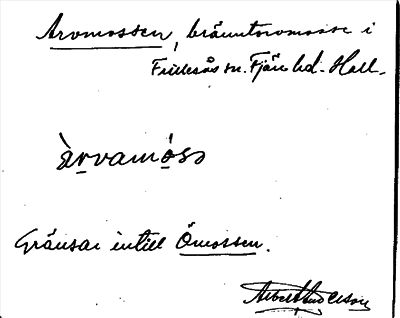 Aromossen, bränntorvmosse i
Frillesås sn. Fjäre hd. Hall.
àrvamósọ
Gränsar intill Ömossen.
Albert Andersson